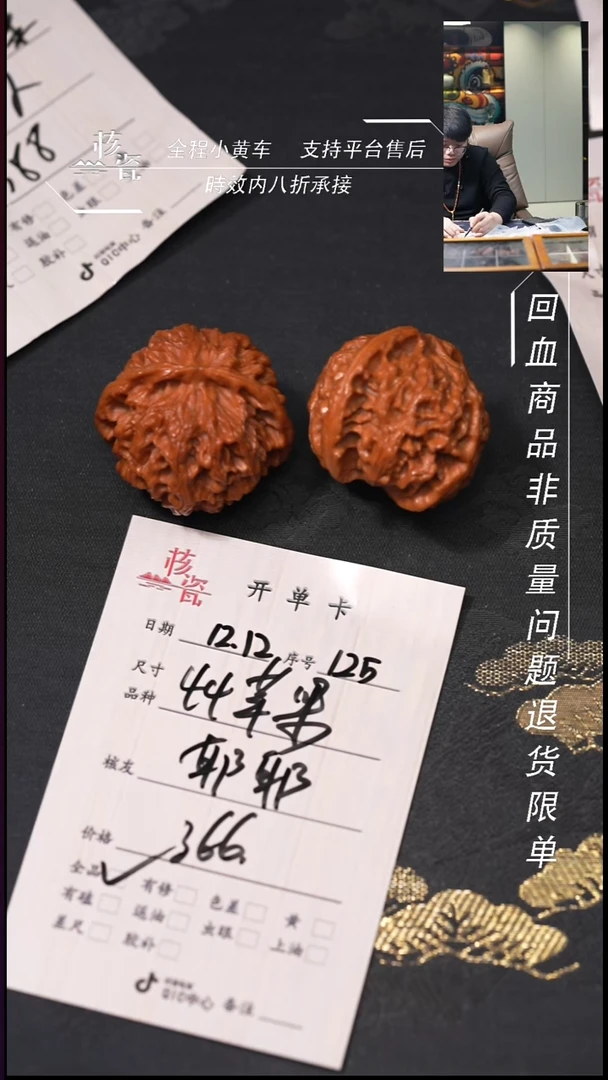 88
有修
色差
送油
胶补
QIC中心 备注
核瓷
全程小黄车 支持平台售后
時效内八折承接
回血商品非质量问题退货限单
核瓷
开单卡
日期 12.12 序号 125
尺寸
品种 44苹果
核友 耶耶
价格 366.
全品✓ 有修 色差 黄
有磕 送油 虫眼 上油
差尺 胶补
QIC中心 备注